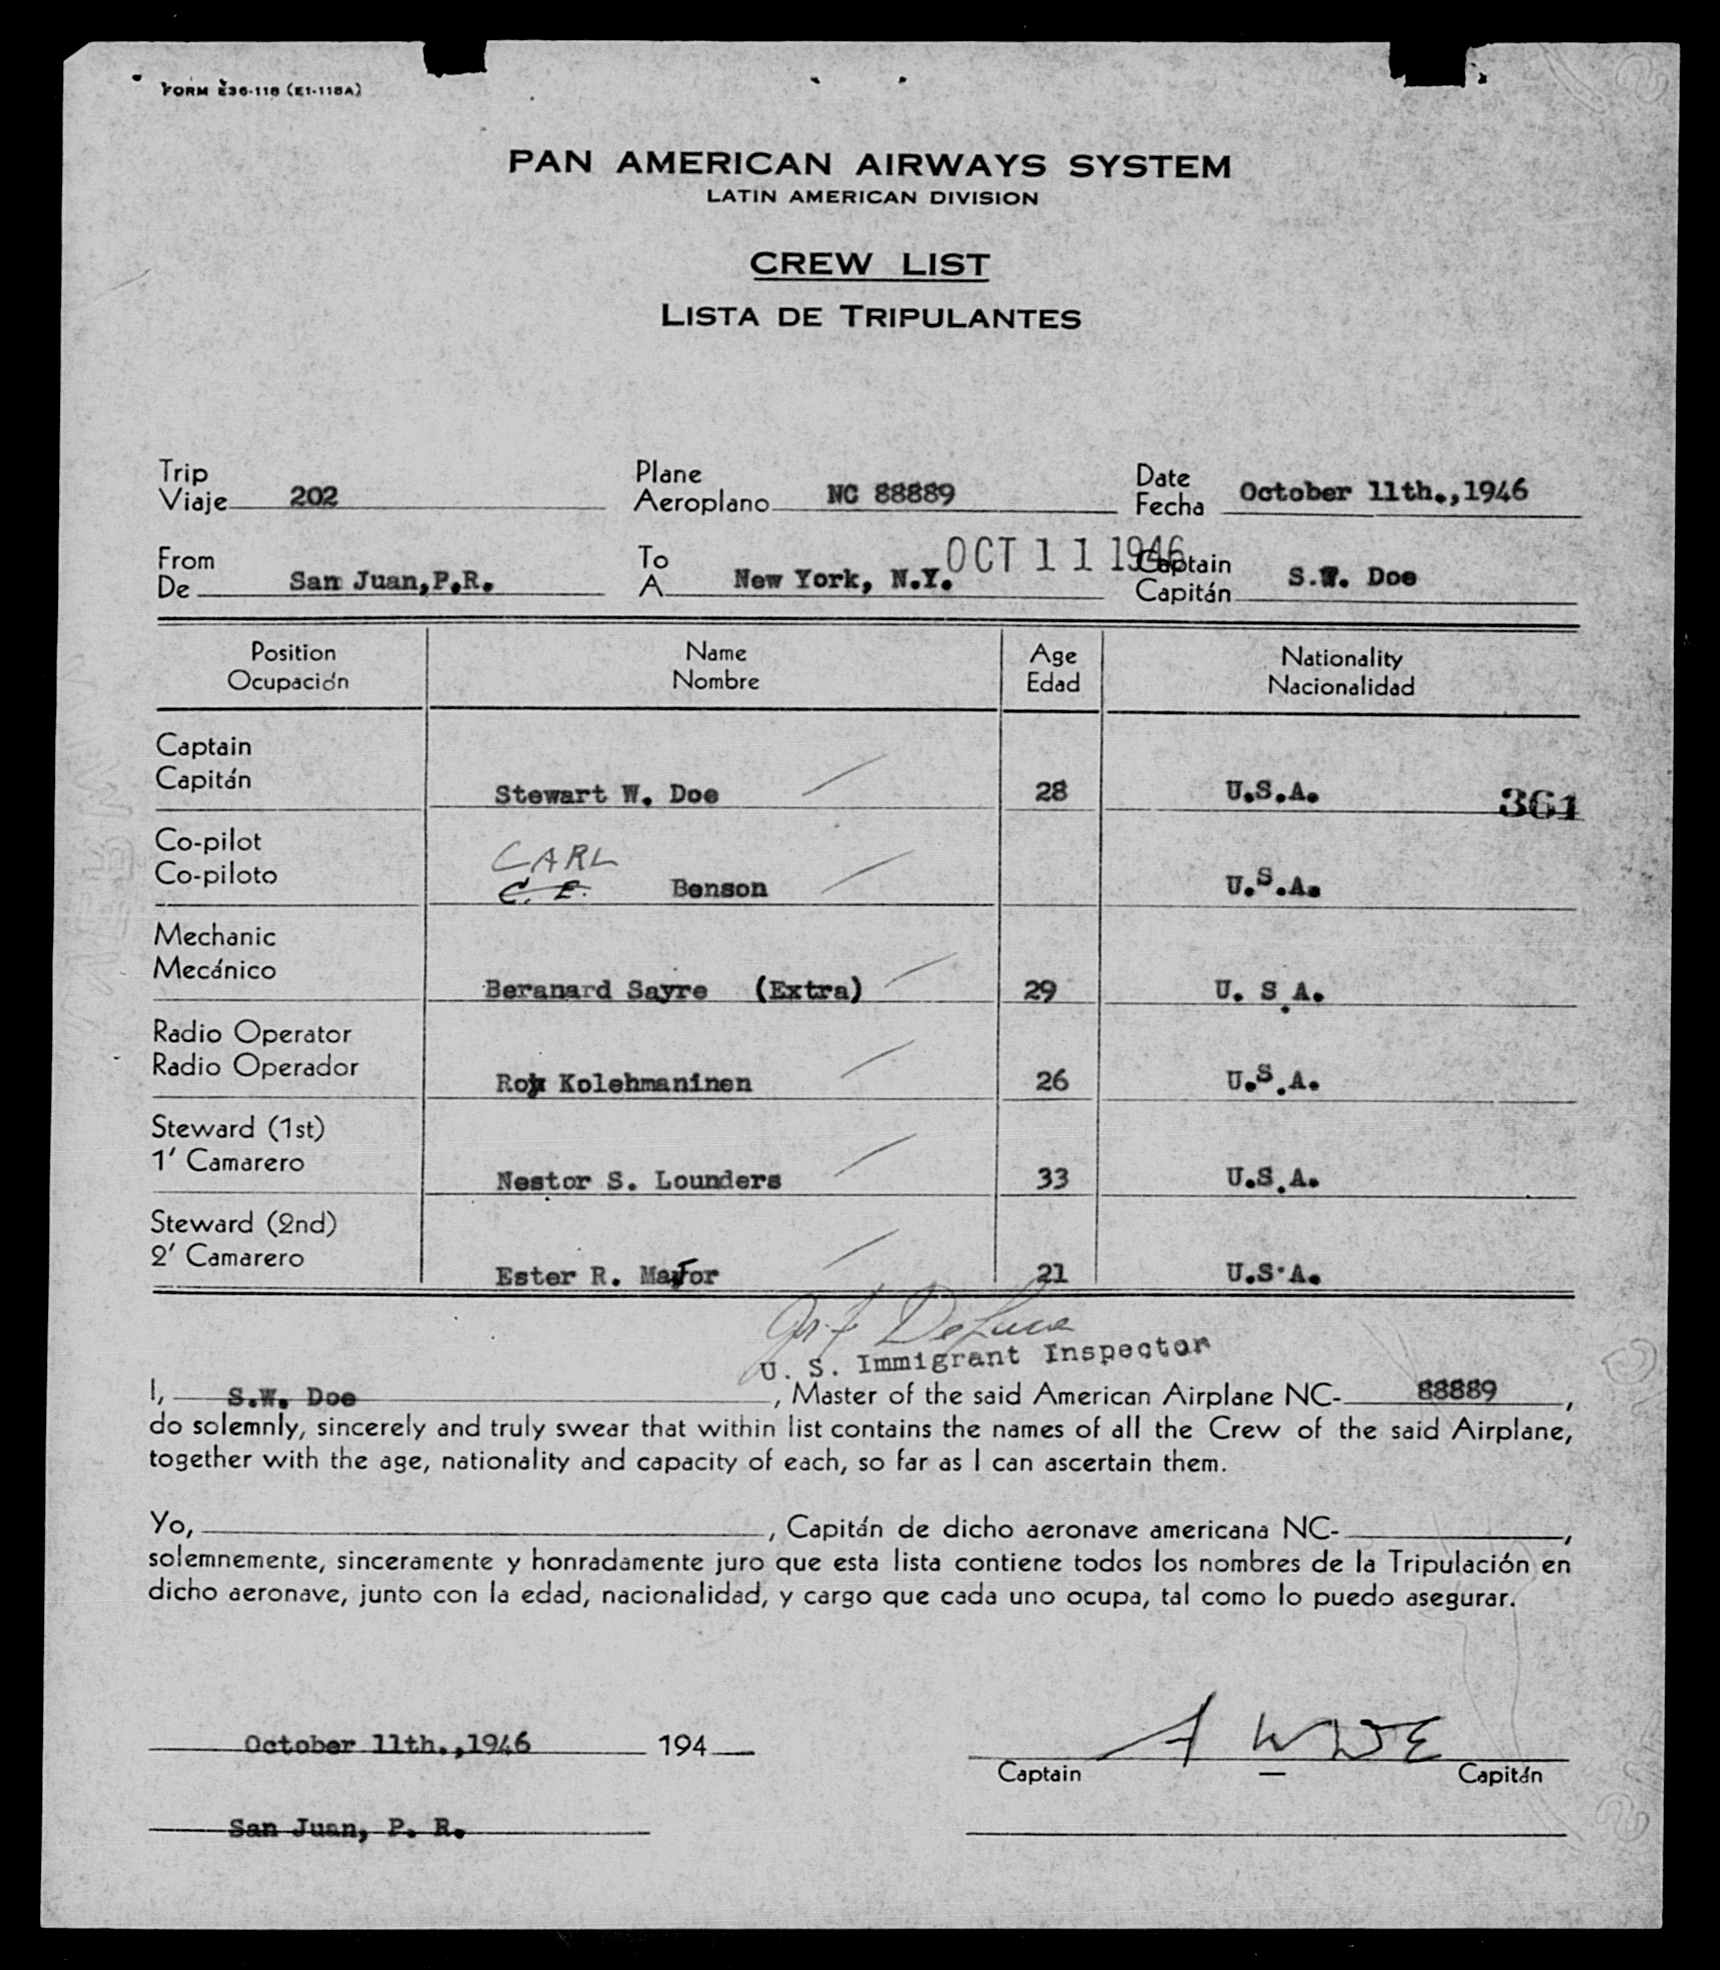 FORM E36-118 (E1-118A)
PAN AMERICAN AIRWAYS SYSTEM
LATIN AMERICAN DIVISION
CREW LIST
LISTA DE TRIPULANTES
Trip
Viaje 202
Plane
Aeroplano NC 88889
Date
Fecha October 11th.,1946
From
De San Juan,P.R.
To
A New York, N.Y.
OCT 11 1946
Captain
Capitán S.W. Doe
Position Name Age Nationality
Ocupación Nombre Edad Nacionalidad
Captain
Capitán Stewart W. Doe 28 U.S.A. 361
Co-pilot CARL
Co-piloto C. E. Benson U.S.A.
Mechanic
Mecánico Beranard Sayre (Extra) 29 U. S.A.
Radio Operator
Radio Operador Roy Kolehmaninen 26 U.S.A.
Steward (1st)
1' Camarero Nestor S. Lounders 33 U.S.A.
Steward (2nd)
2' Camarero Ester R. Major 21 U.S.A.
DeLuca
U. S. Immigrant Inspector
I, S.W. Doe, Master of the said American Airplane NC- 88889,
do solemnly, sincerely and truly swear that within list contains the names of all the Crew of the said Airplane,
together with the age, nationality and capacity of each, so far as I can ascertain them.
Yo, , Capitán de dicho aeronave americana NC- ,
solemnemente, sinceramente y honradamente juro que esta lista contiene todos los nombres de la Tripulación en
dicho aeronave, junto con la edad, nacionalidad, y cargo que cada uno ocupa, tal como lo puedo asegurar.
October 11th.,1946 194
S W Doe
Captain Capitán
San Juan, P. R.